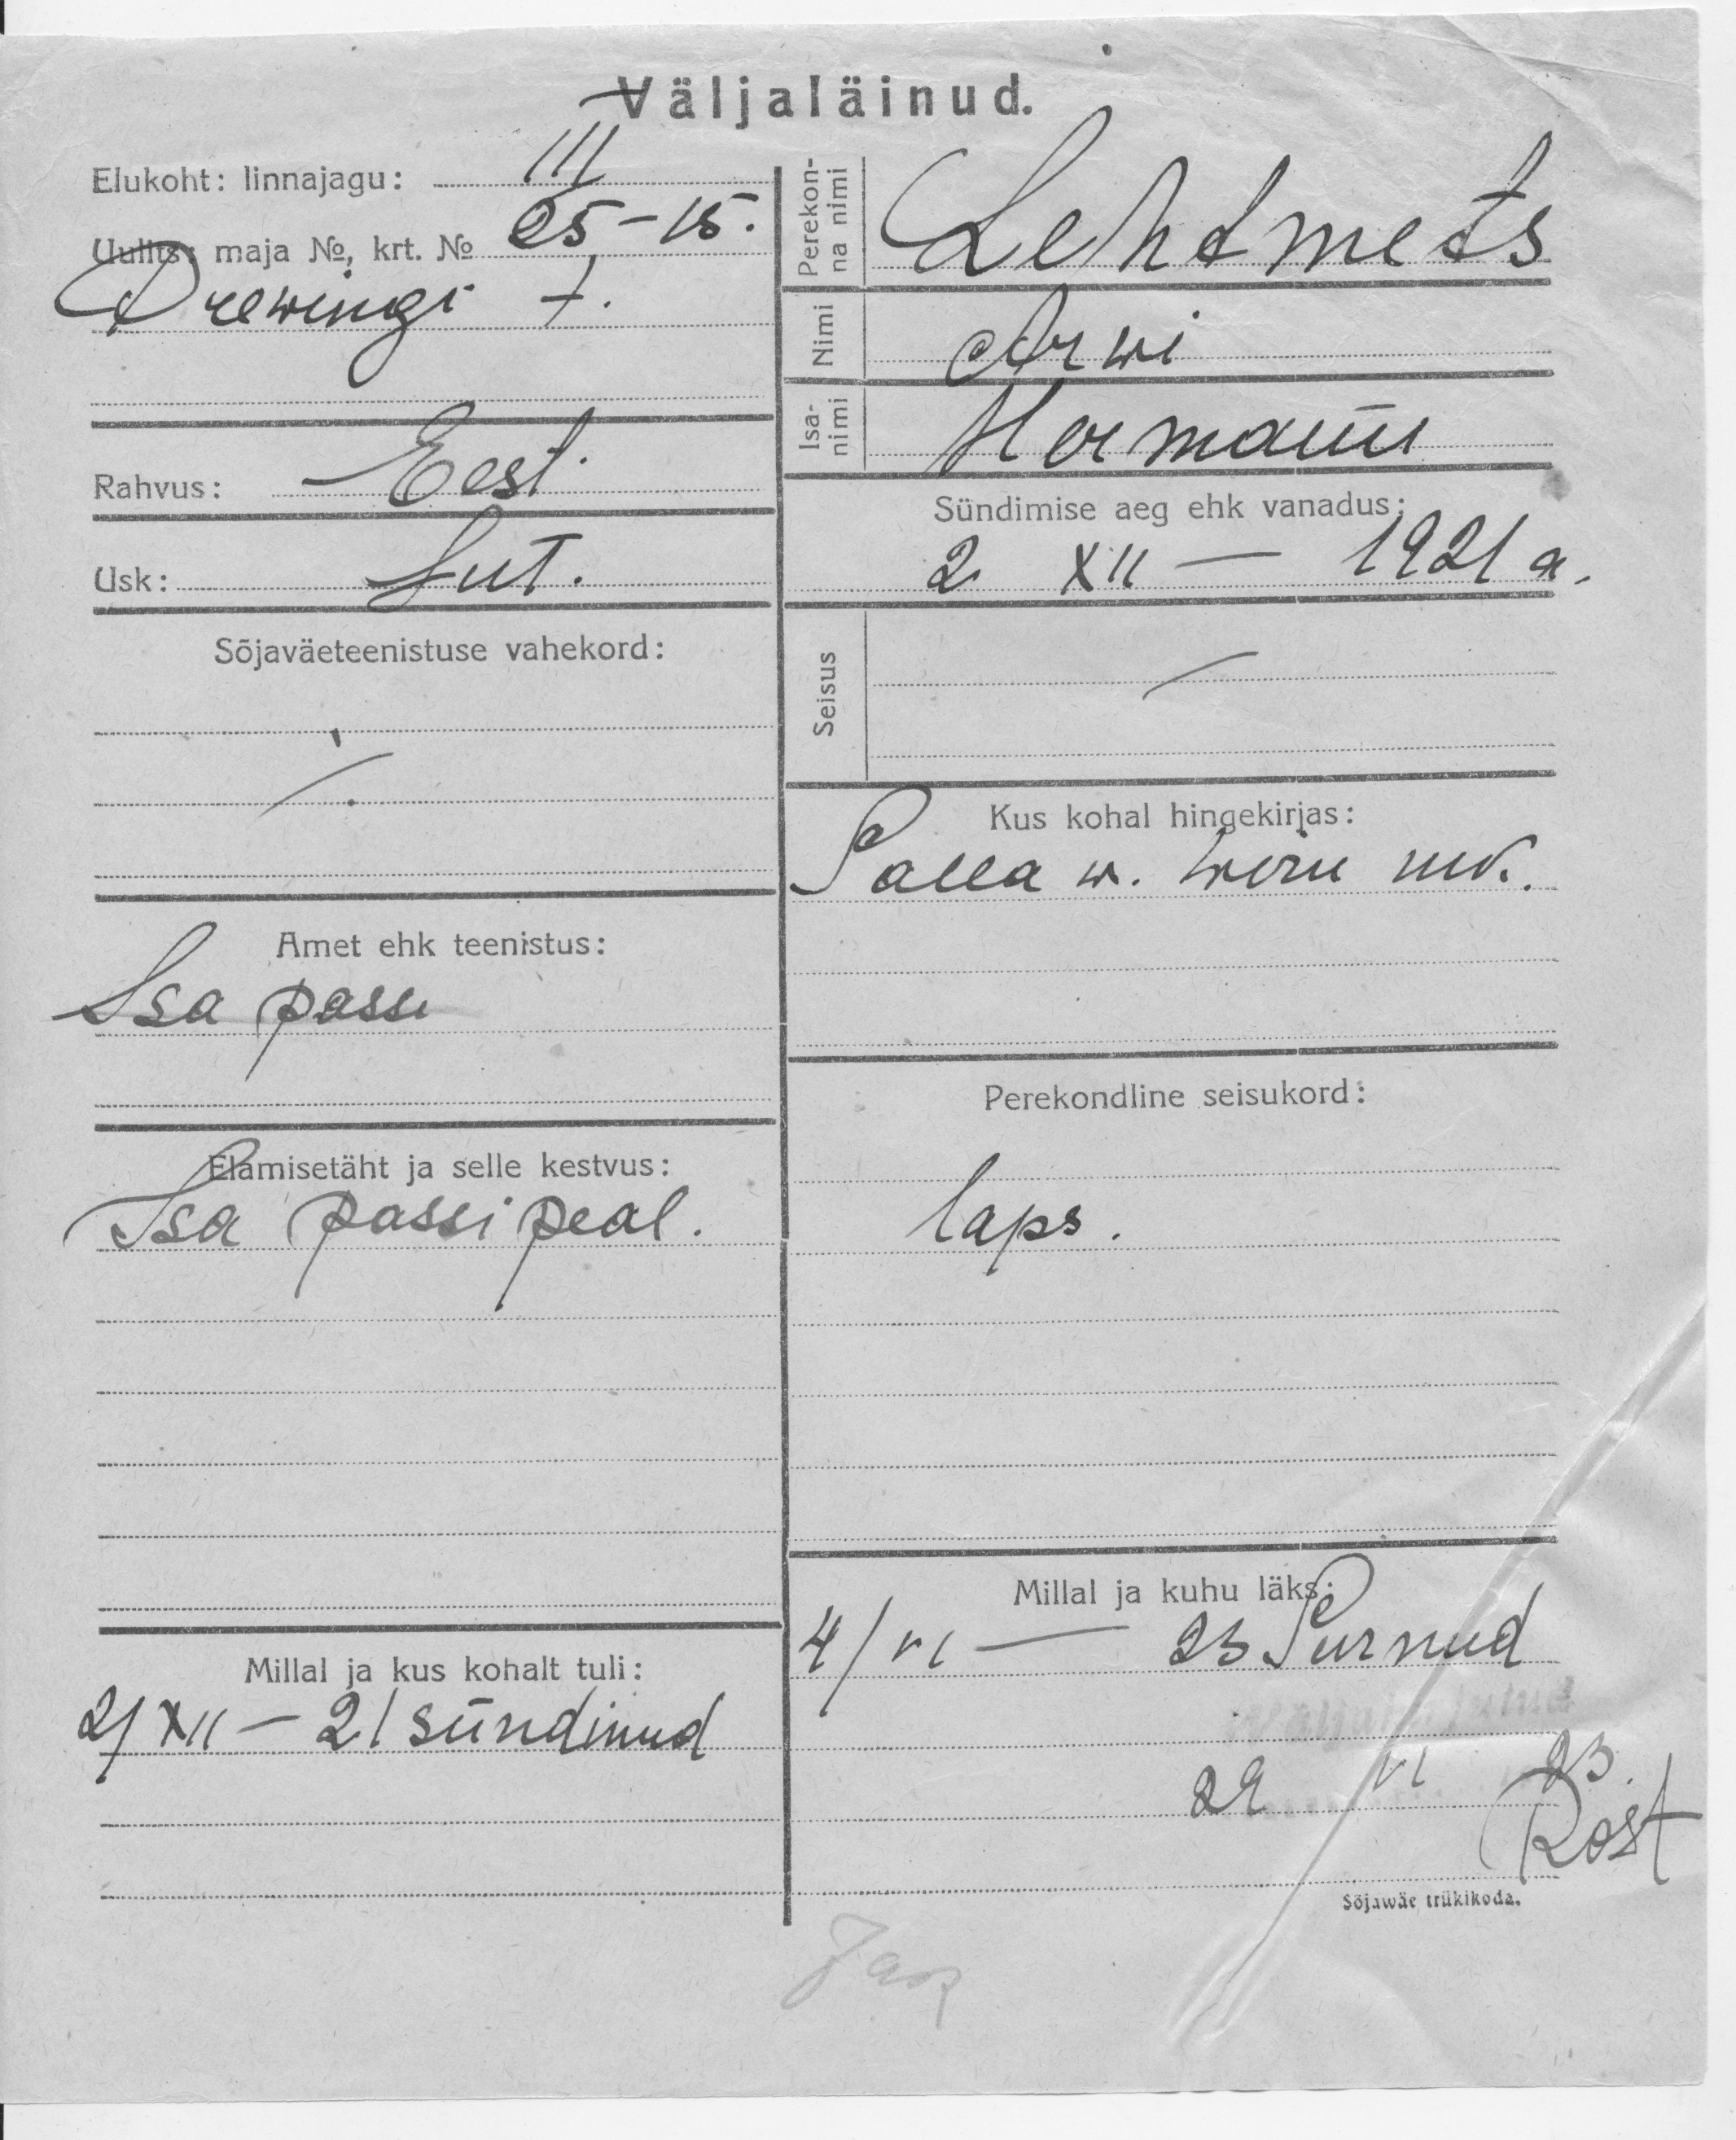 Väljaläinud.
Elukoht: linnajagu: III
Uulits: maja №, krt. № 25-15.
Drewingi t.
Rahvus: Eest.
Usk: Lut.
Sõjaväeteenistuse vahekord:
Amet ehk teenistus:
Isa passi
Elamisetäht ja selle kestvus:
Isa passi peal.
Millal ja kus kohalt tuli:
2/XII - 21 sündinud
Perekonna nimi Lehtmets
Nimi Arwi
Isanimi Hermann
Sündimise aeg ehk vanadus:
2 XII — 1921 a.
Seisus
Kus kohal hingekirjas:
Palla w.
Perekondline seisukord:
laps.
Millal ja kuhu läks:
4/VI — 23 Surnud
29 VI 23.
Rost
Sõjawäe trükikoda.